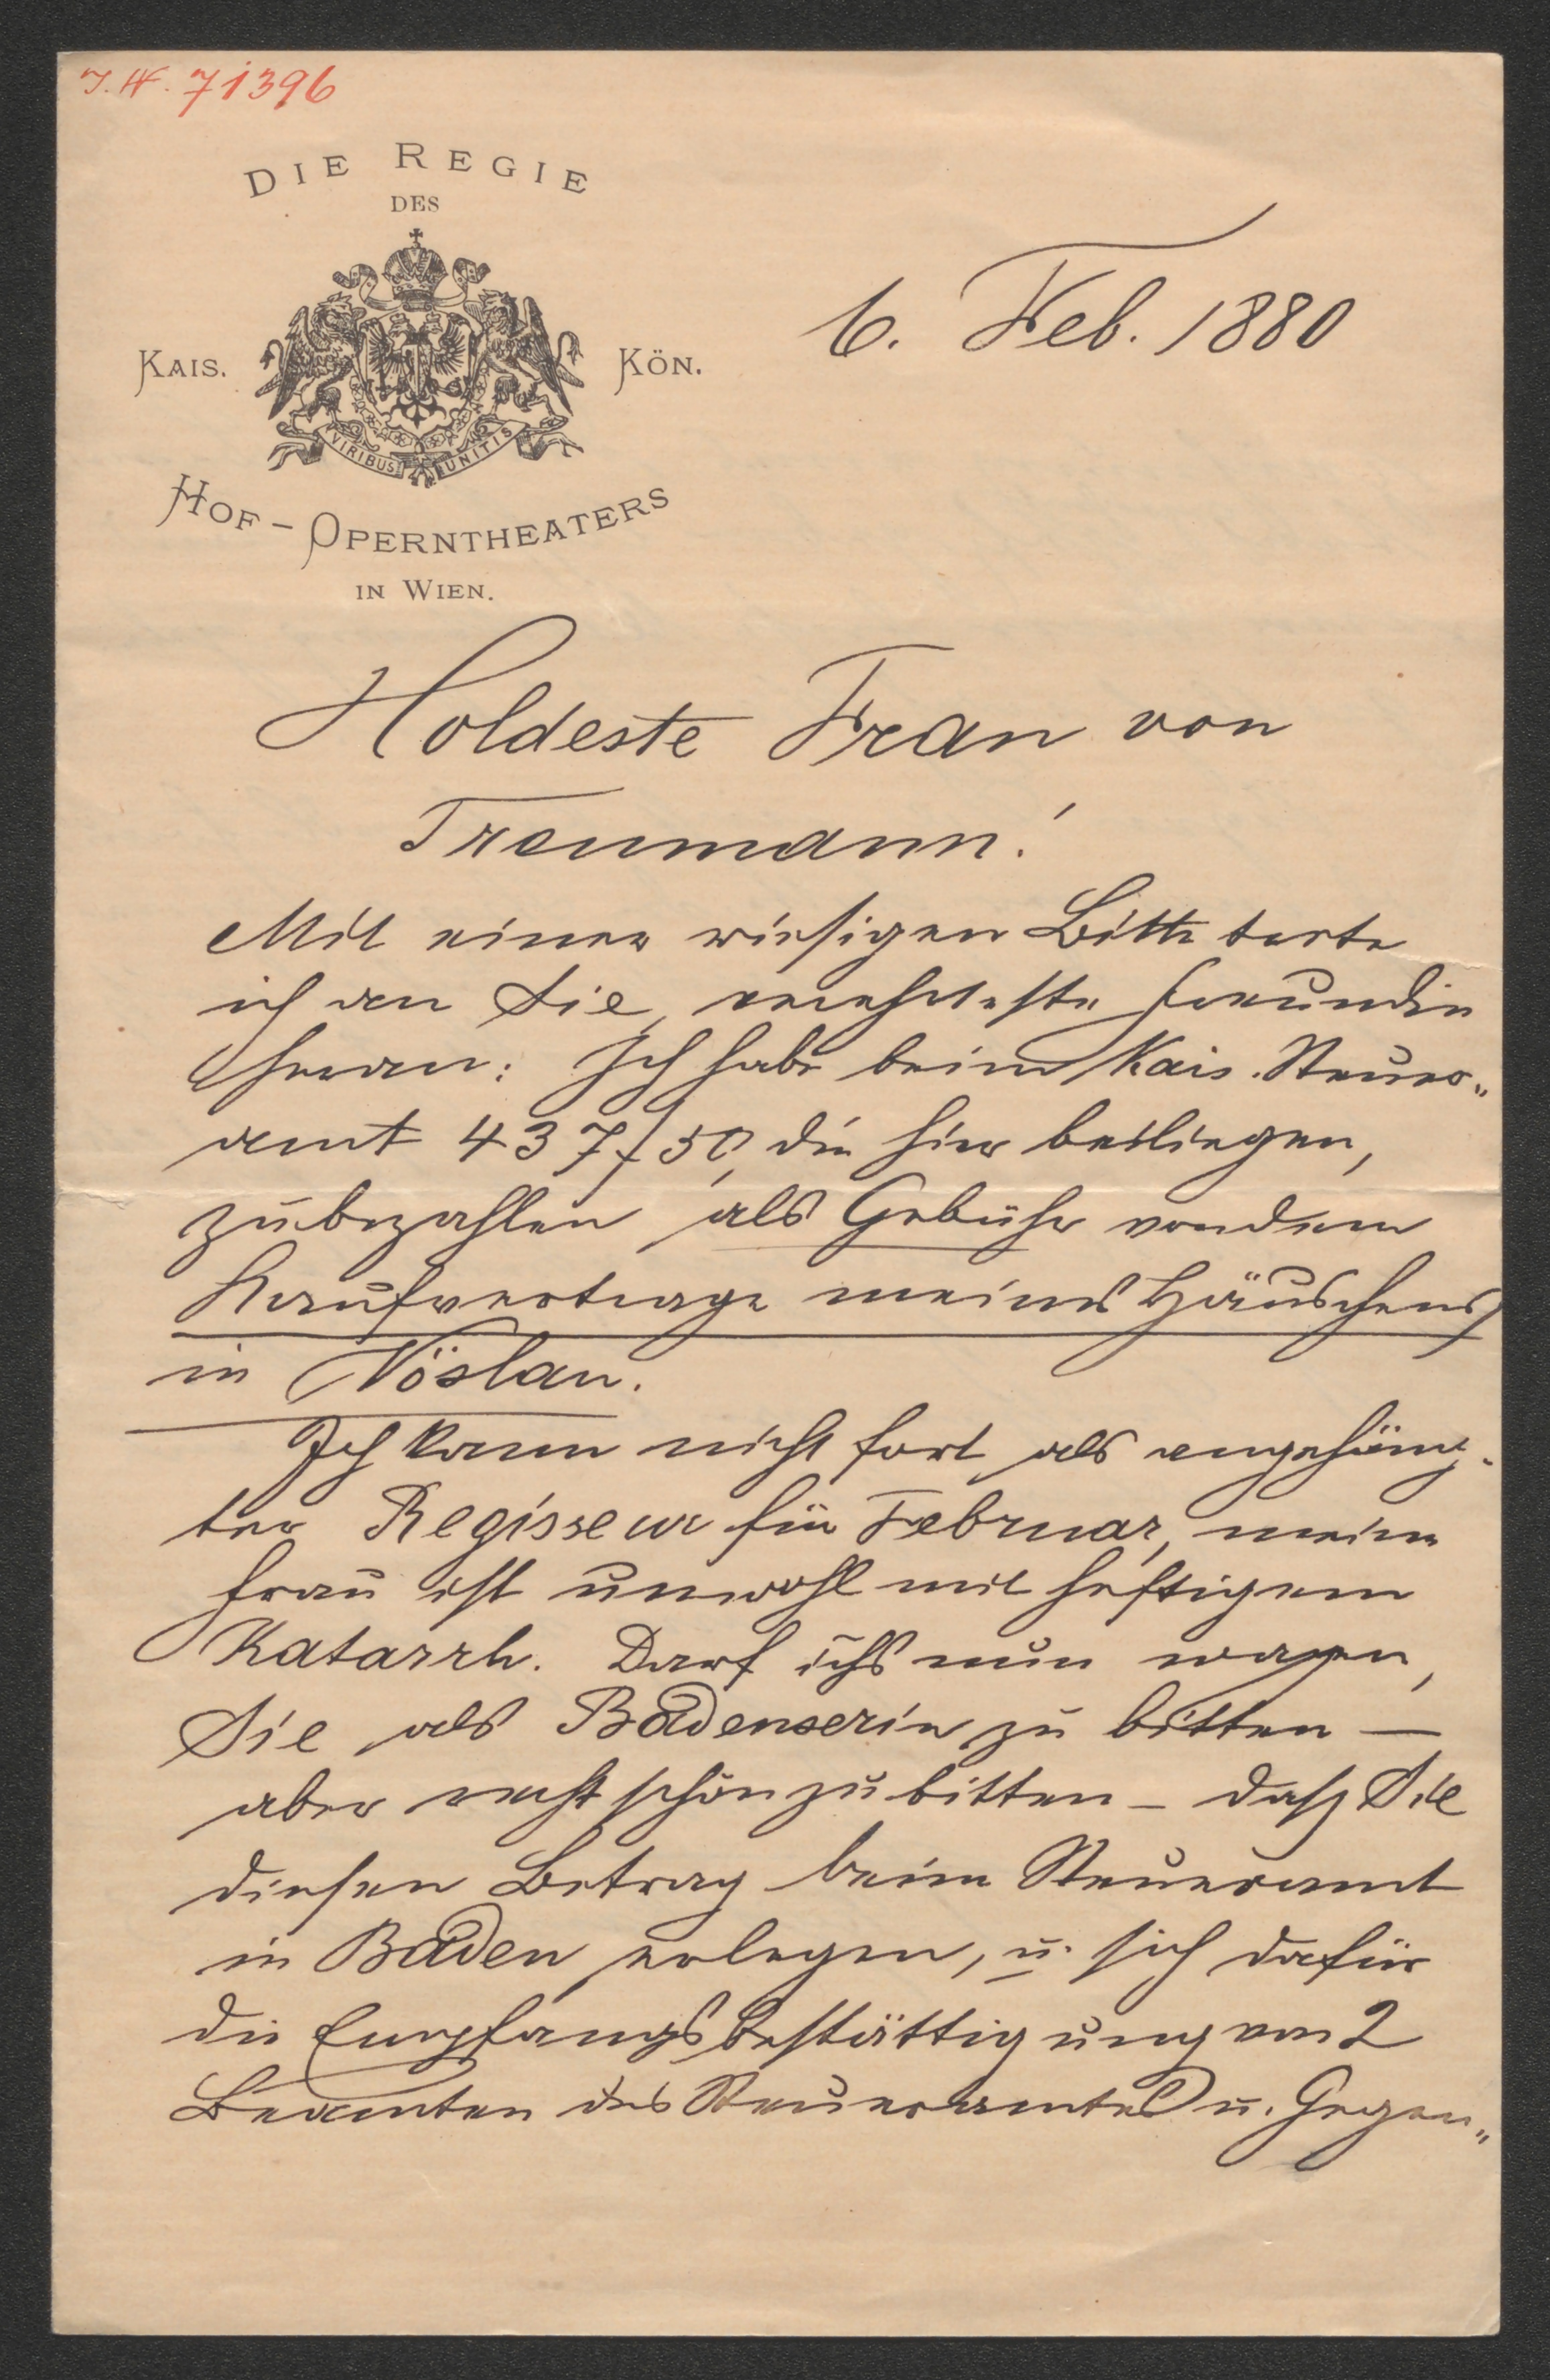 J.N. 71396
DIE REGIE
DES
KAIS. KÖN.
VIRIBUS UNITIS
HOF-OPERNTHEATERS
IN WIEN.
6. Feb. 1880
Holdeste Frau von
Treumann!
Mit einer riesigen Bitte trete
ich an Sie, verehrteste Freundin
heran: Ich habe beim Kais. Steuer„
amt 437f50, die hier beiliegen,
zubezahlen als Gebühr von dem
Kaufvertrage meines Häuschens
in Vöslau.
Ich kann nicht fort als angehäng-
ter Regisseur für Februar, meine
Frau ist unwohl mit heftigem
Katarrh. Darf ichs nun wagen,
Sie als Badenserin zu bitten —
aber recht schön zu bitten – dasz Sie
diesen Betrag beim Steueramt
in Baden erlegen, u. sich dafür
die Empfangsbestättigung von 2
Beamten des Steueramtes u. Gegen„